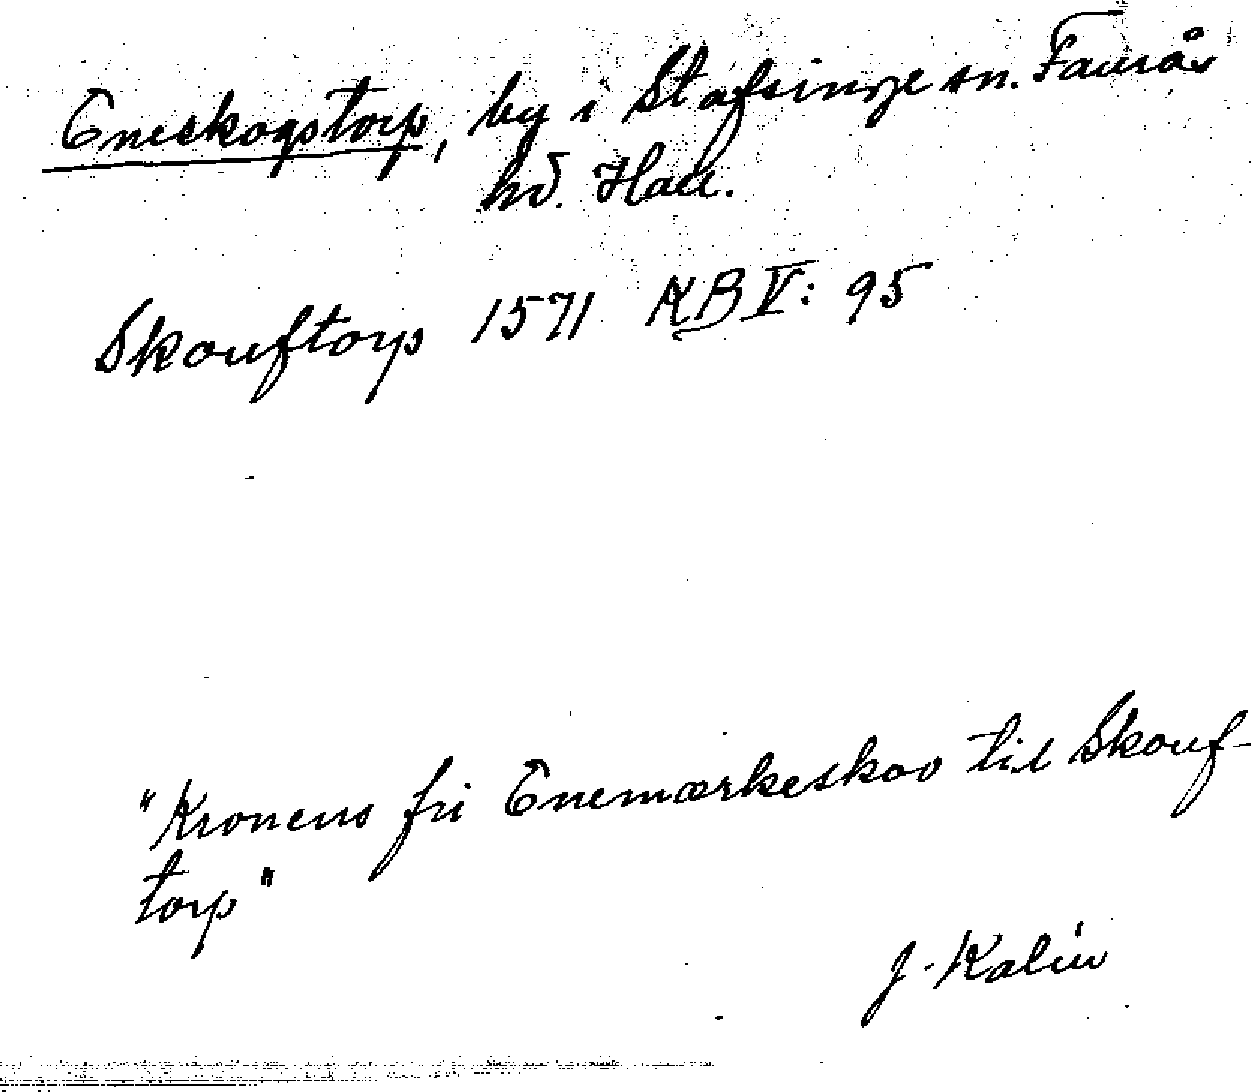 Eneskogstorp, by i Stafsinge sn. Faurås
hd. Hall.
Skouftorp 1571 KB V: 95
"Kronens fri Enemærkeskov til Skouf-
torp"
J. Kalén